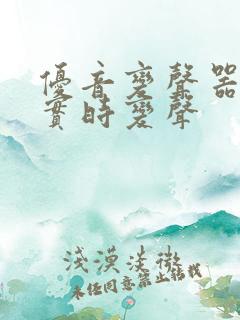 優音變聲器
實時變聲
淺漠淡微
未经同意禁止转载